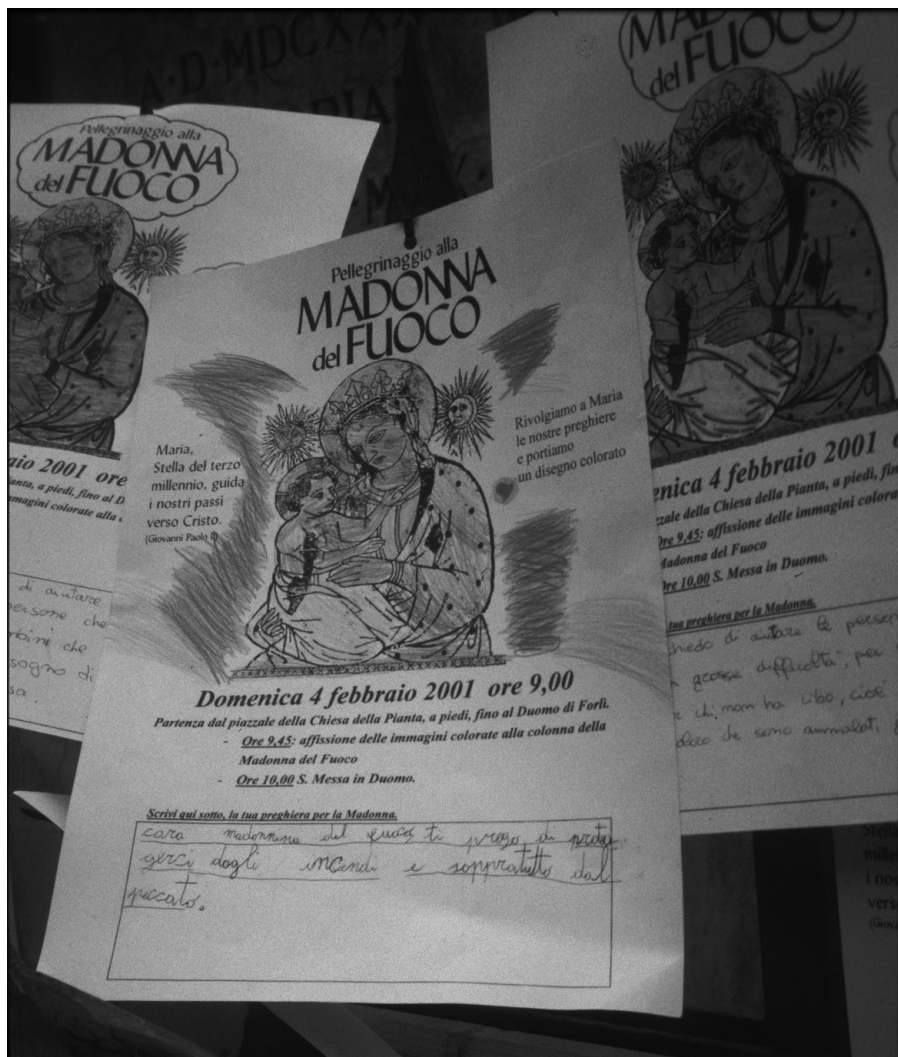 A·D·MDCXXX
Pellegrinaggio alla
MADONNA
del FUOCO
aio 2001 ore
ianta, a piedi, fino al D
mmagini colorate alla
di aiutare
persone che
mbini che
sogno di
sa.
Pellegrinaggio alla
MADONNA
del FUOCO
Maria,
Stella del terzo
millennio, guida
i nostri passi
verso Cristo.
(Giovanni Paolo II)
Rivolgiamo a Maria
le nostre preghiere
e portiamo
un disegno colorato
Domenica 4 febbraio 2001 ore 9,00
Partenza dal piazzale della Chiesa della Pianta, a piedi, fino al Duomo di Forlì.
- Ore 9,45: affissione delle immagini colorate alla colonna della
Madonna del Fuoco
- Ore 10,00 S. Messa in Duomo.
Scrivi qui sotto, la tua preghiera per la Madonna.
cara madonnina del fuoco, ti prego di proteg
gerci dagli incendi e soppratutto dal
peccato.
MADONNA
del FUOCO
enica 4 febbraio 2001 o
zzale della Chiesa della Pianta, a piedi, fin
Ore 9,45: affissione delle immagini colora
Madonna del Fuoco
Ore 10,00 S. Messa in Duomo.
tua preghiera per la Madonna.
hiedo di aiutare le person
grosse difficoltà, per
chi non ha cibo, cioè
che sono ammalati,
Stella
mille
i nos
vers
(Giova